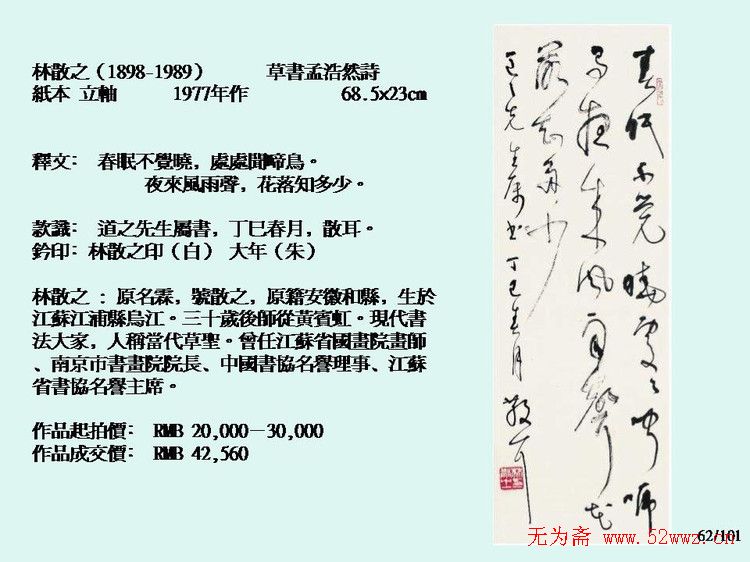 林散之（1898-1989） 草書孟浩然詩
紙本 立軸 1977年作 68.5x23cm
釋文： 春眠不覺曉，處處聞啼鳥。
夜來風雨聲，花落知多少。
款識： 道之先生屬書，丁巳春月，散耳。
鈐印：林散之印（白） 大年（朱）
林散之 ：原名霖，號散之，原籍安徽和縣，生於
江蘇江浦縣烏江。三十歲後師從黃賓虹。現代書
法大家，人稱當代草聖。曾任江蘇省國畫院畫師
、南京市書畫院院長、中國書協名譽理事、江蘇
省書協名譽主席。
作品起拍價： RMB 20,000－30,000
作品成交價： RMB 42,560
春眠不覺曉處處聞啼
鳥夜來風雨聲花
落知多少
道之先生屬書丁巳春月散耳
无为斋 www.52wwz.cn
62/101